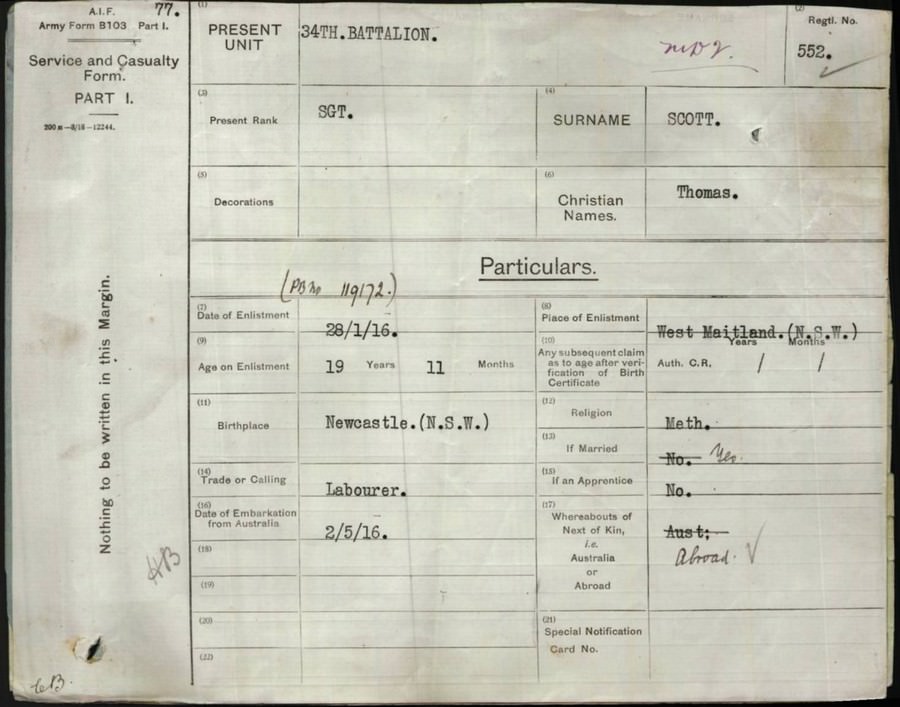 A.I.F. 77.
Army Form B103 Part I.
Service and Casualty
Form.
PART I.
200 m—8/18—12244.
Nothing to be written in this Margin.
HB
(1)
PRESENT
UNIT
34TH.BATTALION.
(2)
Regtl. No.
552.
(3)
Present Rank
SGT.
(4)
SURNAME
SCOTT.
(5)
Decorations
(6)
Christian
Names.
Thomas.
Particulars.
(PB No 119172.)
(7)
Date of Enlistment
28/1/16.
(8)
Place of Enlistment
West Maitland.(N.S.W.)
(9)
Age on Enlistment
19 Years 11 Months
(10)
Any subsequent claim
as to age after veri-
fication of Birth
Certificate
Years Months
Auth. C.R. / /
(11)
Birthplace
Newcastle.(N.S.W.)
(12)
Religion
Meth.
(13)
If Married
No. Yes.
(14)
Trade or Calling
Labourer.
(15)
If an Apprentice
No.
(16)
Date of Embarkation
from Australia
2/5/16.
(17)
Whereabouts of
Next of Kin,
i.e.
Australia
or
Abroad
Aust;
Abroad.
(18)
(19)
(20)
(21)
Special Notification
Card No.
(22)